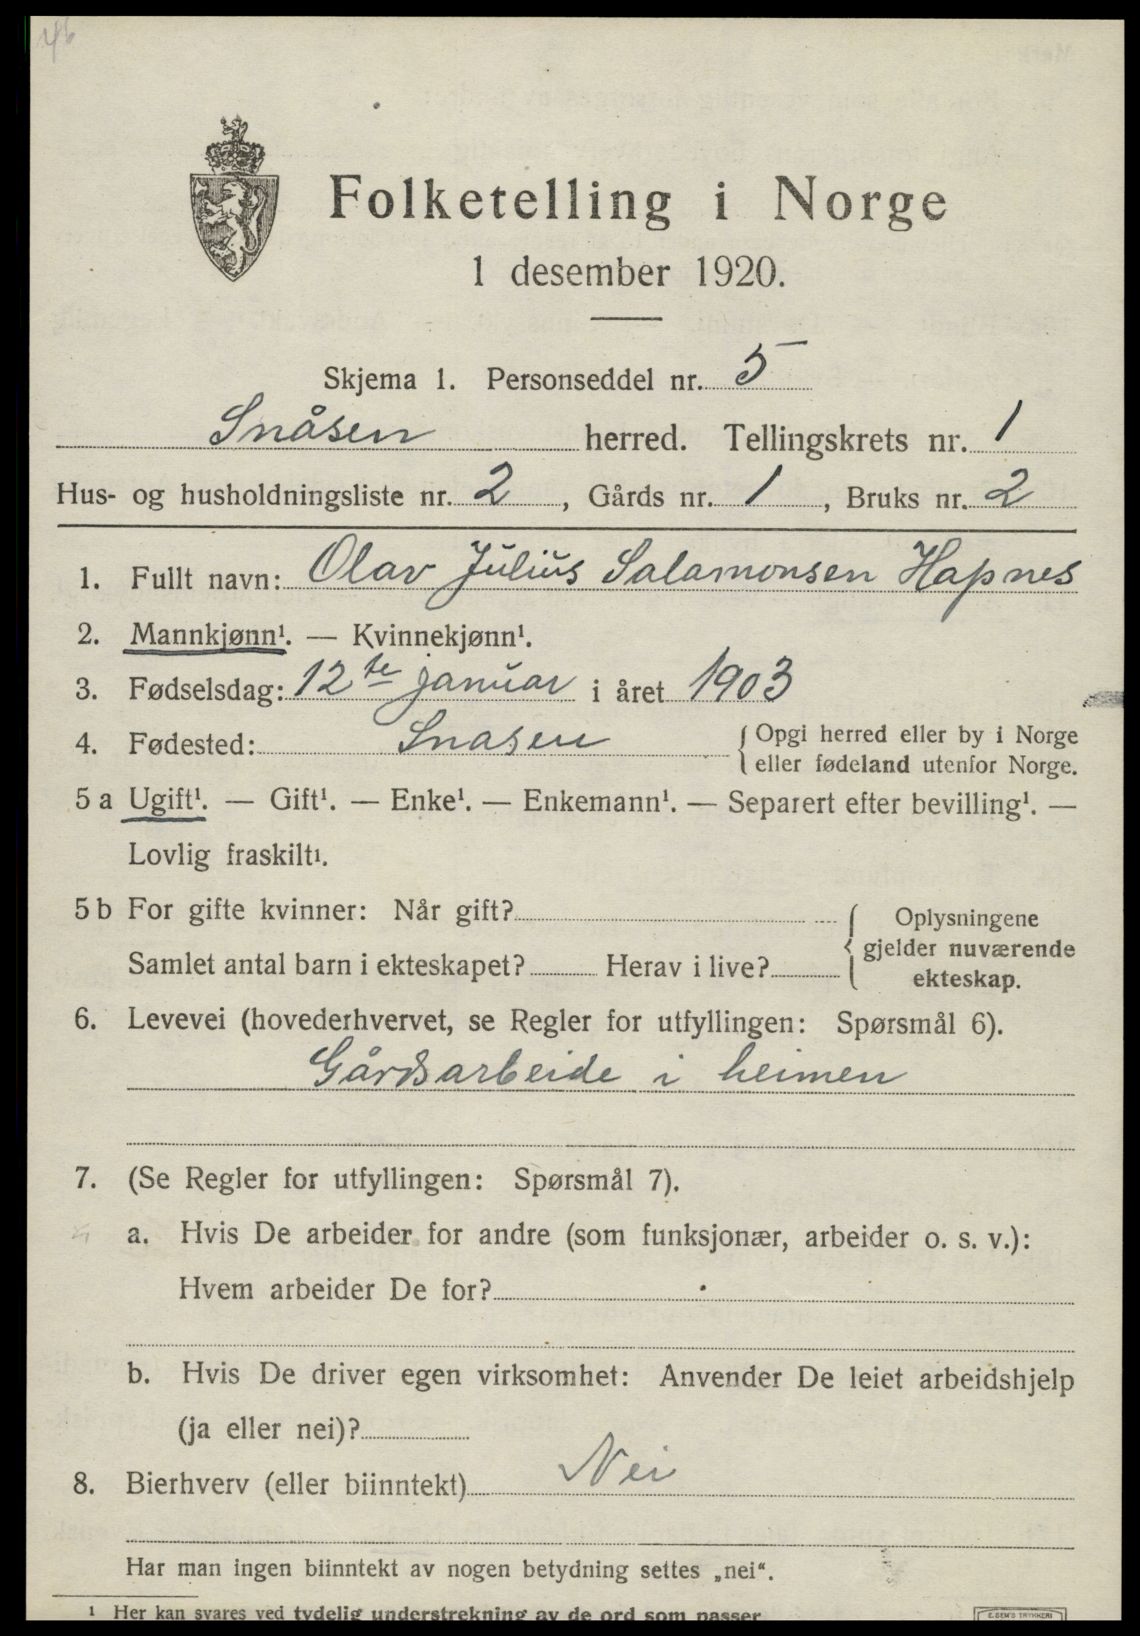 Folketelling i Norge
1 desember 1920.
Skjema 1. Personseddel nr. 5
Snåsen herred. Tellingskrets nr. 1
Hus- og husholdningsliste nr. 2, Gårds nr. 1, Bruks nr. 2
1. Fullt navn: Olav Julius Salamonsen Hapnes
2. Mannkjønn¹. — Kvinnekjønn¹.
3. Fødselsdag: 12te januar i året 1903
4. Fødested: Snasen { Opgi herred eller by i Norge
eller fødeland utenfor Norge.
5 a Ugift¹. — Gift¹. — Enke¹. — Enkemann¹. — Separert efter bevilling¹. —
Lovlig fraskilt¹.
5 b For gifte kvinner: Når gift? { Oplysningene
gjelder nuværende
Samlet antal barn i ekteskapet? Herav i live?
ekteskap.
6. Levevei (hovederhvervet, se Regler for utfyllingen: Spørsmål 6).
Gårdsarbeide i heimen
7. (Se Regler for utfyllingen: Spørsmål 7).
a. Hvis De arbeider for andre (som funksjonær, arbeider o. s. v.):
Hvem arbeider De for?
b. Hvis De driver egen virksomhet: Anvender De leiet arbeidshjelp
(ja eller nei)?
8. Bierhverv (eller biinntekt) Nei
Har man ingen biinntekt av nogen betydning settes „nei“.
¹ Her kan svares ved tydelig understrekning av de ord som passer